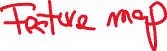 Feature map